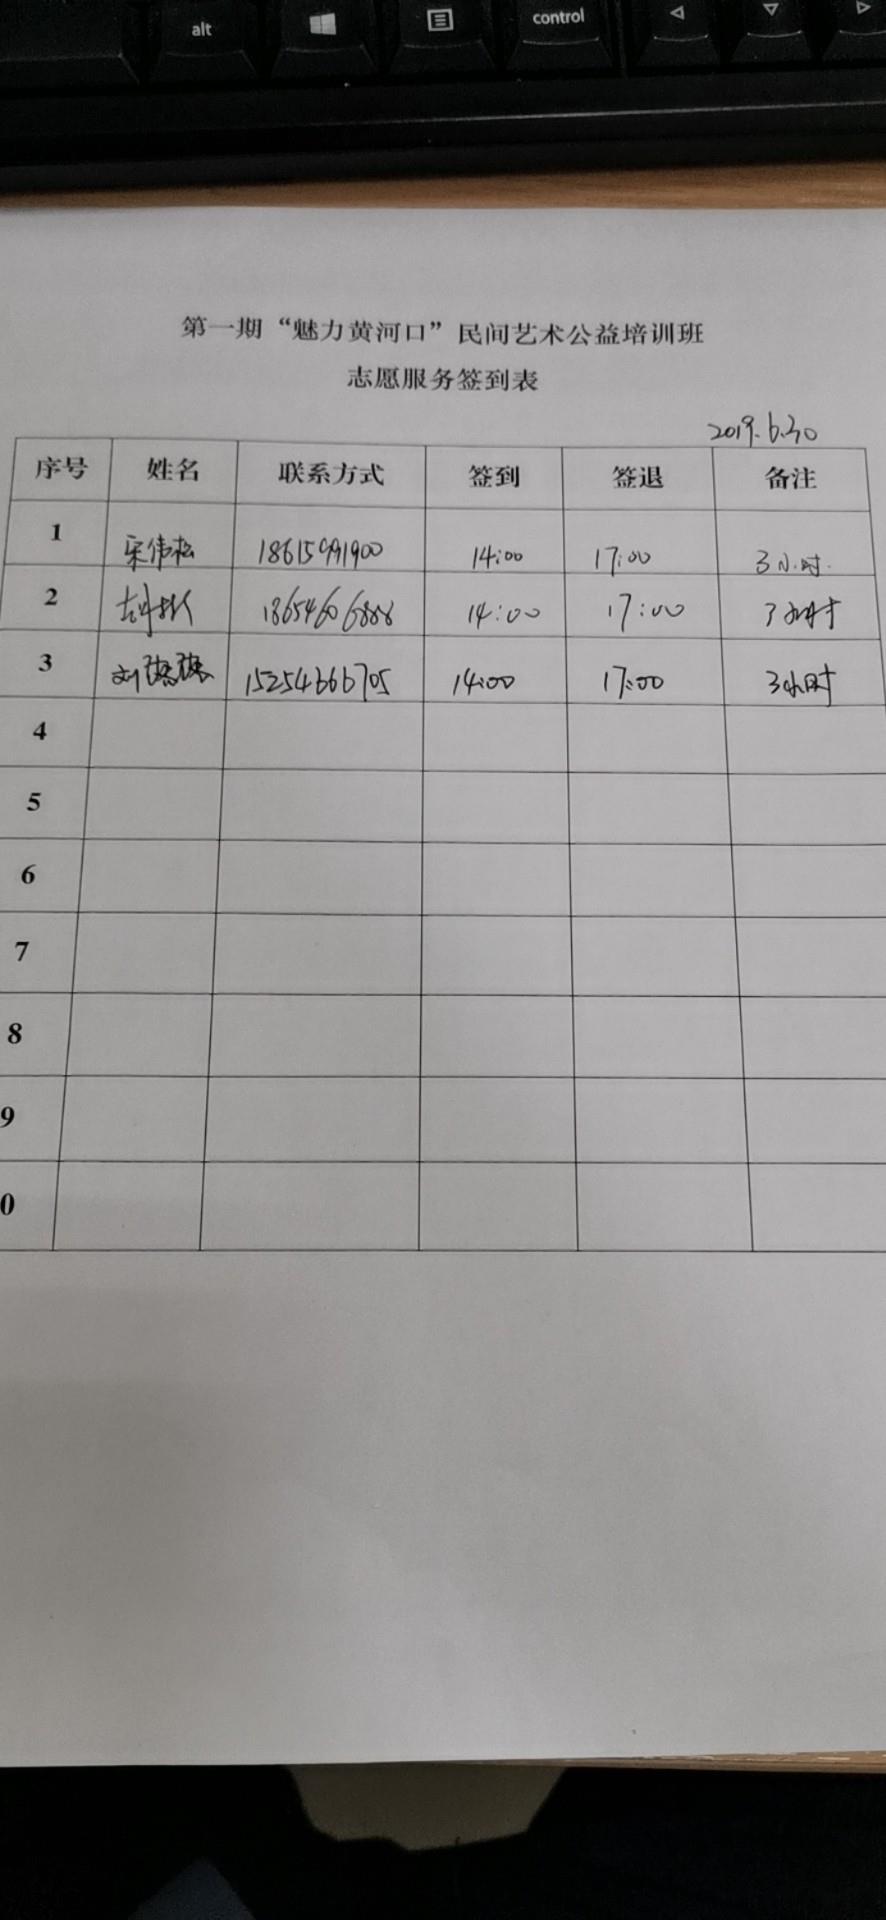 alt
control
第一期“魅力黄河口”民间艺术公益培训班
志愿服务签到表
2019.6.30
序号 姓名 联系方式 签到 签退 备注
1 宋伟松 18615991900 14:00 17:00 3小时.
2 18654606888 14:00 17:00 3小时
3 刘 15254666705 14:00 17:00 3小时
4
5
6
7
8
9
0